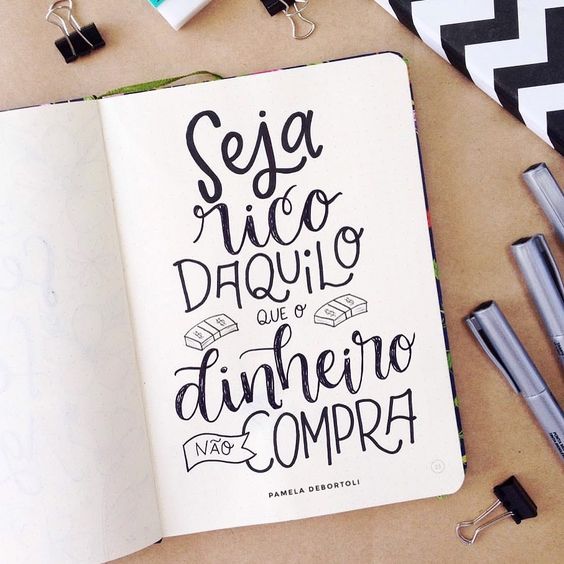 Seja
rico
DAQUILO
QUE O
$ $ $ $
dinheiro
NÃO COMPRA
PAMELA DEBORTOLI